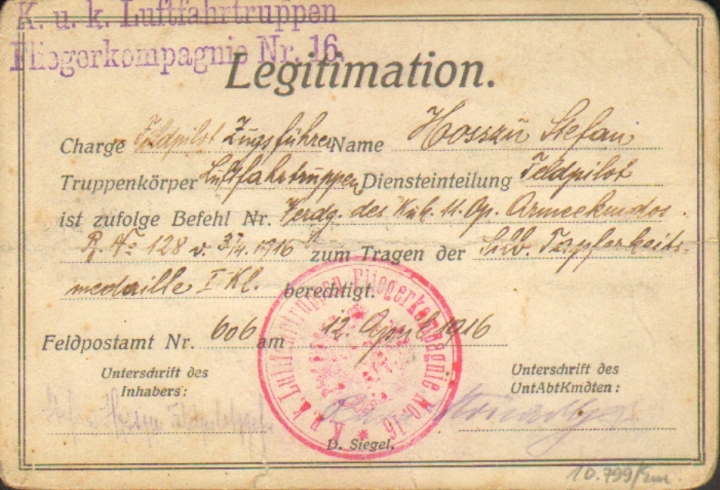 K. u. k. Luftfahrtruppen
Fliegerkompagnie Nr. 16.
Legitimation.
Charge Feldpilot Zugsführer Name Hosszú Stefan
Truppenkörper Luftfahrtruppen Diensteinteilung Feldpilot
ist zufolge Befehl Nr. Verdg. des K.u.k. 11. Op. Armeekmdos.
R. No 128 v. 3/4. 1916 zum Tragen der Silb. Tapferkeits-
medaille I Kl. berechtigt.
Feldpostamt Nr. 606 am 12. April 1916
Unterschrift des Inhabers:
Unterschrift des UntAbtKmdten:
K. u. k. Luftfahrtruppen Fliegerkompagnie No. 16
D. Siegel.
10.799